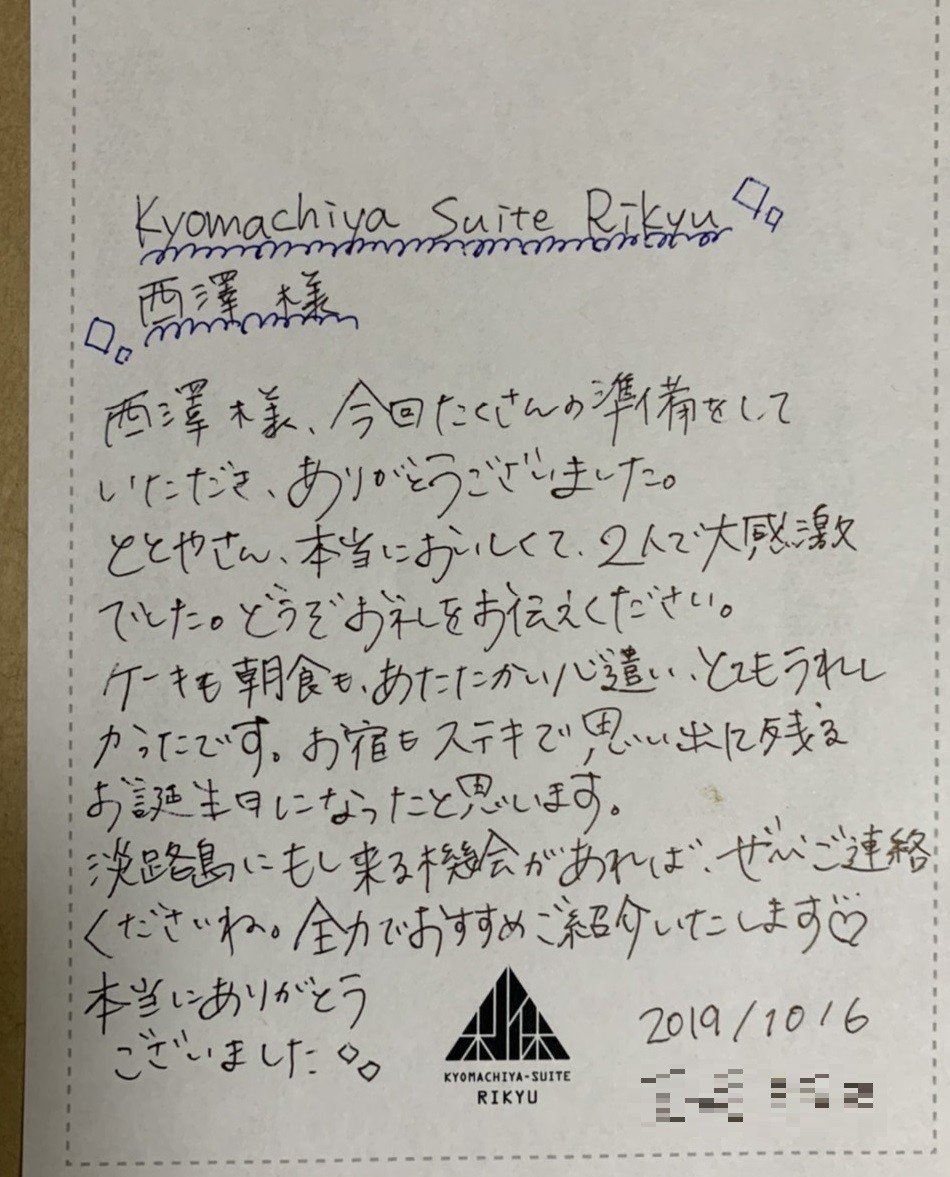 Kyomachiya Suite Rikyu
西澤 様
西澤様、今回たくさんの準備をして
いただき、ありがとうございました。
ととやさん、本当においしくて、2人で大感激
でした。どうぞお礼をお伝えください。
ケーキも朝食も、あたたかい心遣い、とてもうれし
かったです。お宿もステキで思い出に残る
お誕生日になったと思います。
淡路島にもし来る機会があれば、ぜひご連絡
くださいね。全力でおすすめご紹介いたします♡
本当にありがとう
ございました
KYOMACHIYA-SUITE
RIKYU
2019/10/6